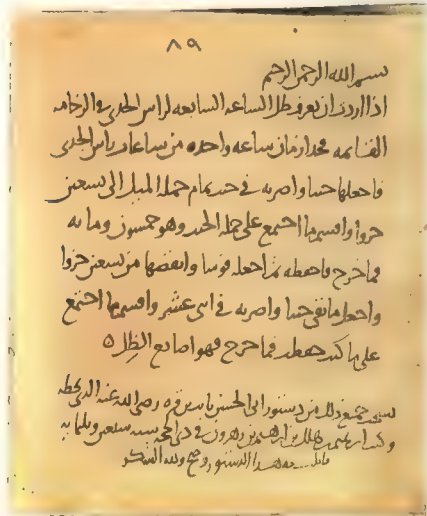 ٨٩
بسم الله الرحمن الرحيم
اذا اردت ان تعرف ظل الساعه السابعه لراس الجدى فى الرخامه
القائمه فخذ ازمان ساعه واحده من ساعات راس الجدى
فاجعلها جيبا واضربه فى جيب تمام جملة الميل الى تسعين
جزوا واقسم ما اجتمع على جملة الجيب وهو خمسون ومايه
فما خرج فاحفظه ثم اجعله قوسا وانقصها من تسعين جزوا
واجعل ما بقى جيبا واضربه فى اثنى عشر واقسم ما اجتمع
على ما كنت حفظت فما خرج فهو اصابع الظل ه
نسخت جميع ذلك من دستور ابى الحسن ثابت بن قره رضى الله عنه الذى بخطه
وكتب ابرهيم بن هلال بن ابرهيم بن زهرون فى ذى الحجه سنه سبعين وثلثمايه
قابلت به هذا الدستور وصح ولله الشكر